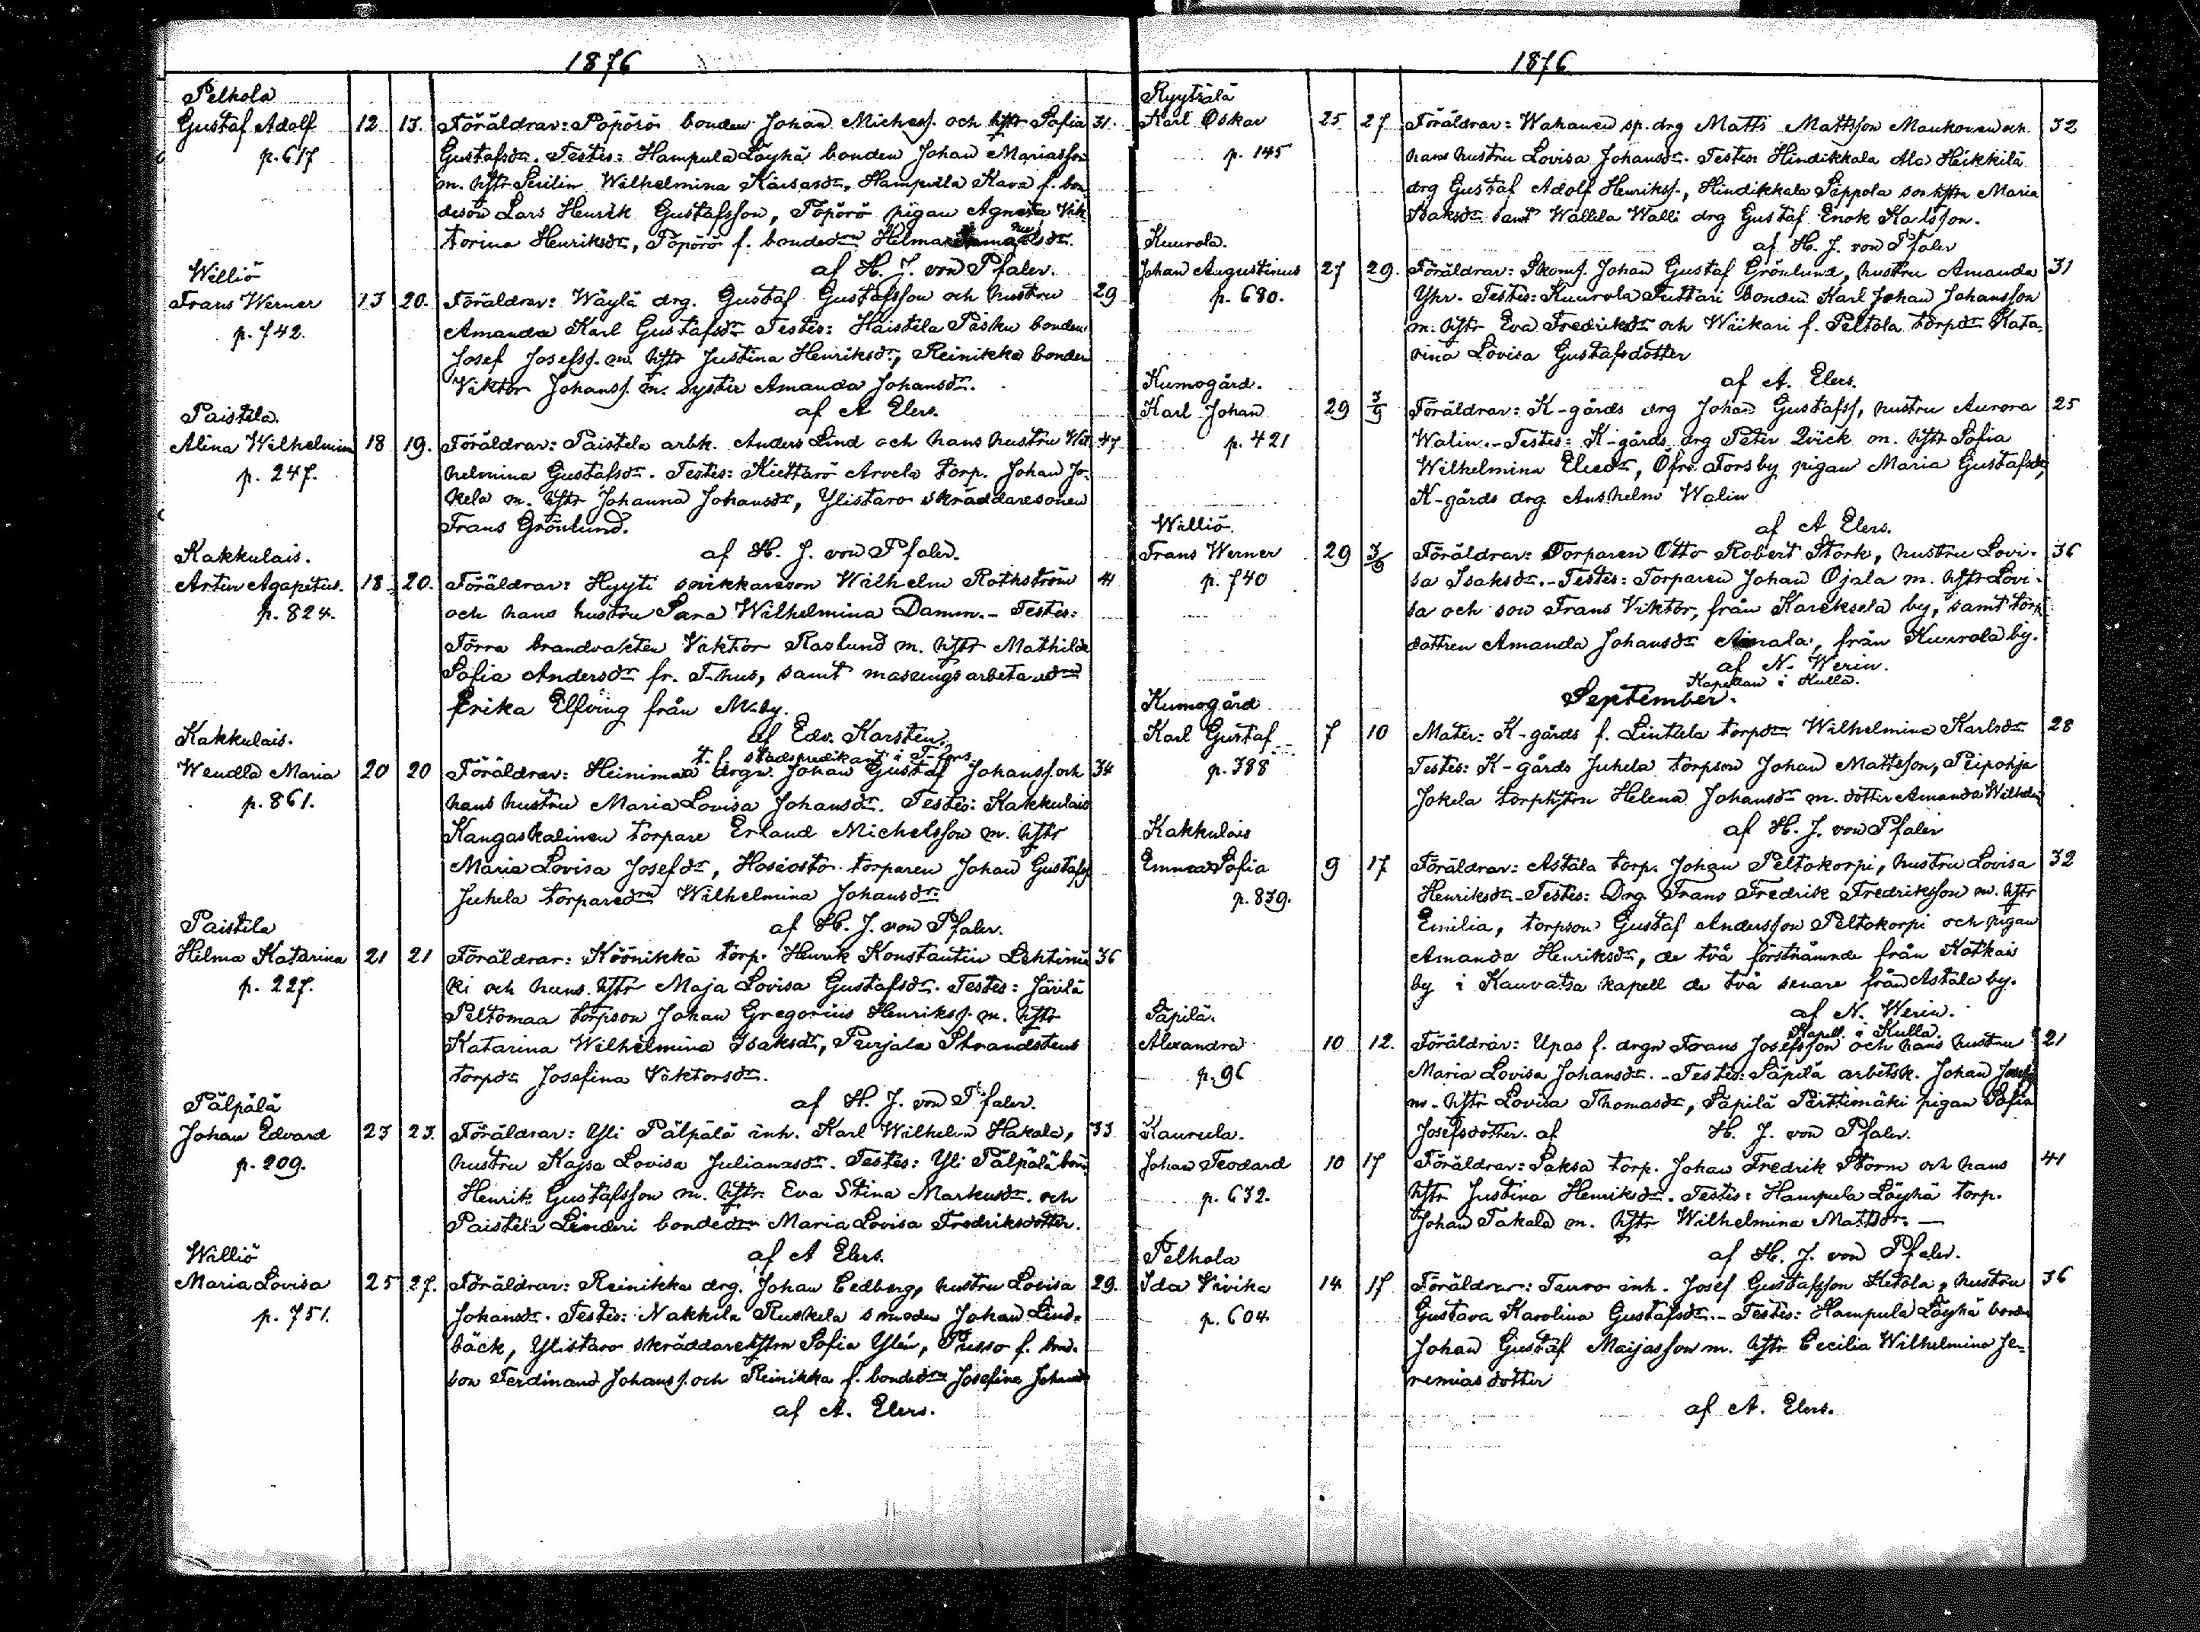 1876
Pelhola
Gustaf Adolf 12 13. Föräldrar: Pöpörö bonden Johan Michelsf. och hstr Sofia 31.
p. 617 Gustafsdr. Testes: Hampula Löyhä bonden Johan Mariasson
m. hstr Serilin Wilhelmina Kaisasdr, Hampula Kara f. bon
deson Lars Henrik Gustafsson, Pöpörö pigan Agneta Vik
torina Henriksdr, Pöpörö f. bondedrn Helma
af H. J. von Pfaler.
Williö
Frans Werner 13 20. Föräldrar: Wäylä drg. Gustaf Gustafsson och hustru 29
p. 742. Amanda Karl Gustafsdr Testes: Haistila Pasku bonden
Josef Josefsf. m. hstr Justina Henriksdr, Reinikka bonden
Viktor Johansf. m. syster Amanda Johansdr.
af A Elers.
Paistila.
Alina Wilhelmina 18 19. Föräldrar: Paistila arbk. Anders Lind och hans hustru Wil 47
p. 247. helmina Gustafsdr. Testes: Kiettarö Arvela torp. Johan Jo-
kela m. hstr Johanna Johansdr, Ylistaro skräddaresonen
Frans Grönlund.
af H. J. von Pfaler.
Kakkulais.
Artur Agapetus. 18 20. Föräldrar: Hyyti snikkareson Wilhelm Rothström 41
p. 824. och hans hustru Sara Wilhelmina Damm. - Testes:
Förra brandvakten Viktor Roslund m. hstr Mathilda
Sofia Andersdr fr. T-hus, samt masungsarbetaredrn
Erika Elfving från M-by.
af Edv. Karsten.
t. f. stadspredikant i T-fors.
Kakkulais.
Wendla Maria 20 20 Föräldrar: Heinimaa drgn. Johan Gustaf Johansf. och 34
p. 861. hans hustru Maria Lovisa Johansdr. Testes: Kakkulais
Kangaskalinen torpare Erland Michelsson m. hstr
Maria Lovisa Josefsdr, Hosiostor torparen Johan Gustafsf
Juhela torparedrn Wilhelmina Johansdr
af H. J. von Pfaler.
Paistila
Hilma Katarina 21 21 Föräldrar: Köönikkä torp. Henrik Konstantin Lehtimä 36
p. 227. ki och hans hstr Maja Lovisa Gustafsdr. Testes: Järilä
Peltomaa torpson Johan Gregorius Henriksf. m. hstr
Katarina Wilhelmina Isaksdr, Purjala Strandstens
torpdr Josefina Viktorsdr.
af H. J. von Pfaler.
Pälpälä
Johan Edvard 23 23. Föräldrar: Yli Pälpälä inh. Karl Wilhelm Hakala, 33
p. 209. hustru Kajsa Lovisa Julianasdr. Testes: Yli Pälpälä bond
Henrik Gustafsson m. hstr. Eva Stina Markusdr. och
Paistila Linderi bondedr Maria Lovisa Fredriksdotter.
af A Elers.
Williö
Maria Lovisa 25 27. Föräldrar: Reinikka drg. Johan Cedberg, hustru Lovisa 29.
p. 751. Johansdr. Testes: Nakkila Ruskela smeden Johan Lind-
bäck, Ylistaro skräddarehstrn Sofia Ylén, Prisso f. bond-
son Ferdinand Johansf. och Reinikka f. bondedrn Josefina Johansdr
af A. Elers.
1876
Ryytsälä
Karl Oskar 25 27 Föräldrar: Wahanen sp. drg Matts Mattsson Maukonen och 32
p. 145 hans hustru Lovisa Johansdr. Testes: Hindikkala Ala Heikkilä
drg Gustaf Adolf Henriksf., Hindikkala Seppola sonhstrn Maria
Isaksdr samt Wallila Walli drg Gustaf Enok Karlsson.
af H. J. von Pfaler
Kuurola.
Johan Augustinus 27 29. Föräldrar: Skom. Johan Gustaf Grönlund, hustru Amanda 31
p. 680. Yhr. Testes: Kuurola Tuttari bonden Karl Johan Johansson
m. hstr Eva Fredriksdr och Wiikari f. Peltola torpdr Kata-
rina Lovisa Gustafsdotter
af A. Elers.
Kumogård.
Karl Johan 29 3/9 Föräldrar: K-gårds drg Johan Gustafsf, hustru Aurora 25
p. 421 Walin. - Testes: K-gårds drg Peter Qvick m. hstr Sofia
Wilhelmina Eliedr, Öfre Forsby pigan Maria Gustafsdr,
K-gårds drg Anshelm Walin
af A Elers.
Williö.
Frans Werner 29 3/9 Föräldrar: Torparen Otto Robert Stork, hustru Lovi- 36
p. 740 sa Isaksdr. - Testes: Torparen Johan Ojala m. hstr Lovi-
sa och son Frans Viktor, från Kareksela by, samt torp
dottren Amanda Johansdr Ainala, från Kuurola by.
af N. Werin.
Kapellan i Kulla.
September.
Kumogård
Karl Gustaf 7 10 Mater: K-gårds f. Lintula torpdr Wilhelmina Karlsdr 28
p. 388 Testes: K-gårds Juhela torpson Johan Mattsson, Peipohja
Jokela torphstru Helena Johansdr m. dotter Amanda Wilhelm
af H. J. von Pfaler
Kakkulais
Emma Sofia 9 17 Föräldrar: Astala torp. Johan Peltokorpi, hustru Lovisa 32
p. 839. Henriksdr - Testes: Drg. Frans Fredrik Fredriksson m. hstr
Emilia, torpson Gustaf Andersson Peltokorpi och pigan
Amanda Henriksdr, de två förstnämnde från Kätkäis
by i Kauvatsa kapell de två senare från Astala by.
af N. Werin.
Kapell. i Kulla.
Säpilä.
Alexandra 10 12. Föräldrar: Upas f. drgn Frans Josefsson och hans hustru 21
p. 96 Maria Lovisa Johansdr. - Testes: Säpilä arbetsk. Johan Josefs
m. hstr Lovisa Thomasdr, Säpilä Perttimäki pigan Sofia
Josefsdotter. af H. J. von Pfaler.
Kaurula.
Johan Teodard 10 17 Föräldrar: Saksa torp. Johan Fredrik Storm och hans 41
p. 632. hstr Justina Henriksdr. Testes: Hampula Löyhä torp.
Johan Takala m. hstr Wilhelmina Mattsdr. —
af H. J. von Pfaler.
Pelhola
Ida Vivika 14 17 Föräldrar: Tauro inh. Josef Gustafsson Ketola, hustru 36
p. 604 Gustava Karolina Gustafsdr. - Testes: Hampula Löyhä bonde
Johan Gustaf Maijasson m. hstr Cecilia Wilhelmina Je-
remiasdotter
af A. Elers.